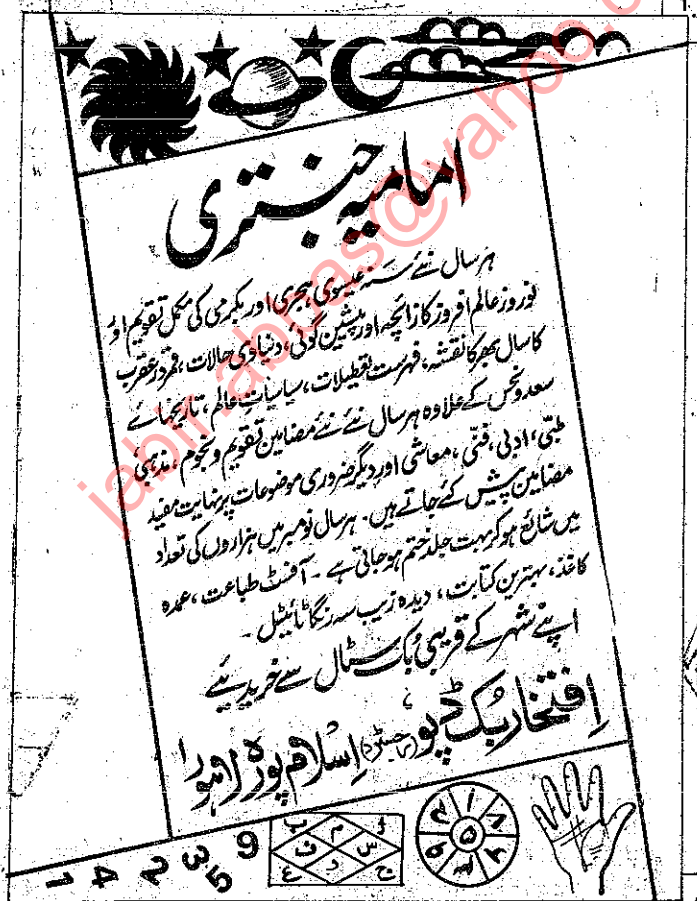 امامیہ جنتری
ہر سال نئے سنہ عیسوی ہجری اور بکرمی کی مکمل تقویم اور
نوروز عالم افروز کا زائچہ اور پیشین گوئی، دنیاوی حالات، قمر در عقرب
کا سال بھر کا نقشہ، فہرست تعطیلات، سیاسیات عالم، تاریخہائے
سعد و نحس کے علاوہ ہر سال نئے نئے مضامین تقویم و نجوم، مذہبی،
طبی، ادبی، فنی، معاشی اور دیگر ضروری موضوعات پر نہایت مفید
مضامین پیش کئے جاتے ہیں۔ ہر سال نومبر میں ہزاروں کی تعداد
میں شائع ہو کر بہت جلد ختم ہو جاتی ہے۔ آفسٹ طباعت، عمدہ
کاغذ، بہترین کتابت، دیدہ زیب سہ رنگا ٹائیٹل۔
اپنے شہر کے قریبی بُک سٹال سے خریدیئے
اِفتخار بُک ڈپو (رجسٹرڈ) اِسلام پورہ لاہور
1 4 2 3 5 9
jabir.abbas@yahoo.c